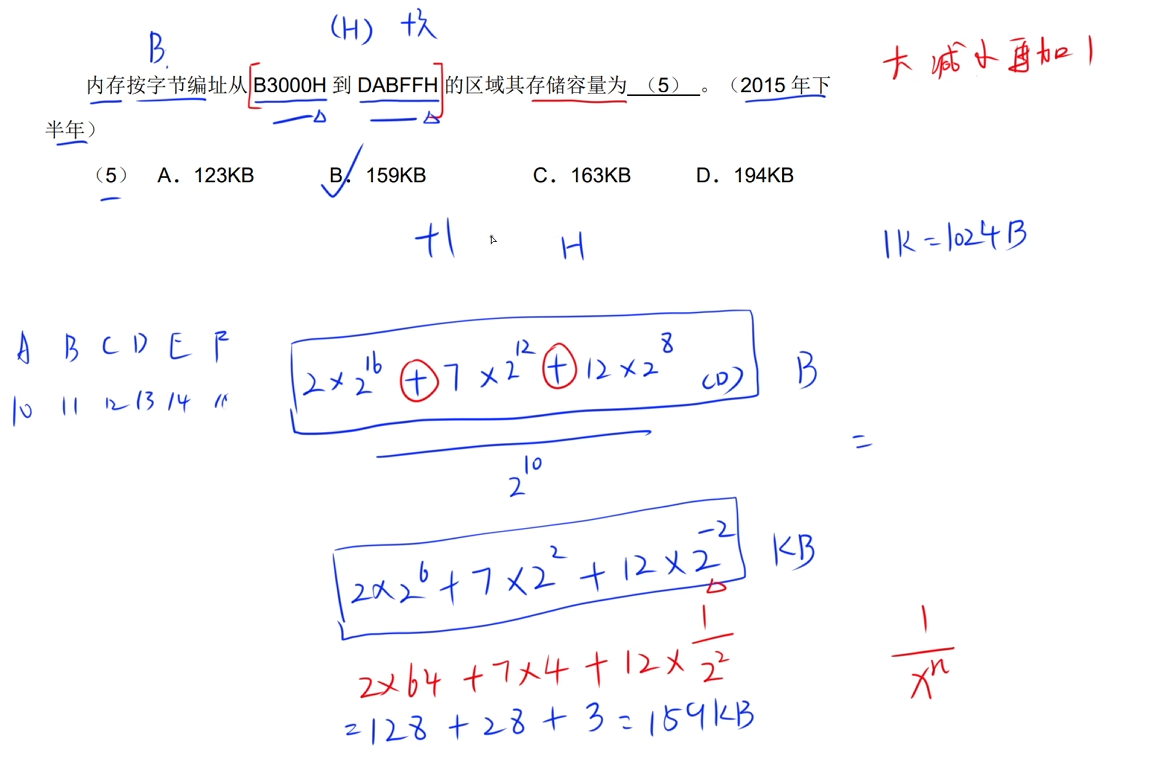 (H) 十六
B.
大减小再加1
内存按字节编址从 B3000H 到 DABFFH 的区域其存储容量为 （5） 。（2015 年下
半年）
（5） A．123KB B．159KB C．163KB D．194KB
+1 H 1K=1024B
A B C D E F
10 11 12 13 14 "
2×2^16 + 7×2^12 + 12×2^8 (D) B
=
2^10
2×2^6 + 7×2^2 + 12×2^-2 KB
2×64 + 7×4 + 12×1/2^2
1/x^n
=128 + 28 + 3 = 159KB